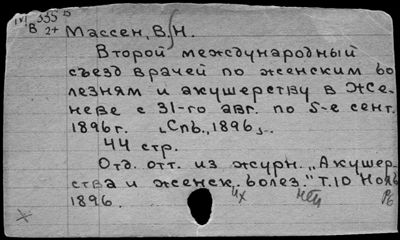 IVI 335
В 2+ Массен, В. Н.
Второй международный
съезд врачей по женским бо
лезням и акушерству в Же-
неве с 31-го авг. по 5-е сент.
1896 г. [Спб., 1896].
44 стр.
Отд. отт. из журн. „Акушер-
ства и женск. болез." Т. 10 Нояб
1896. их